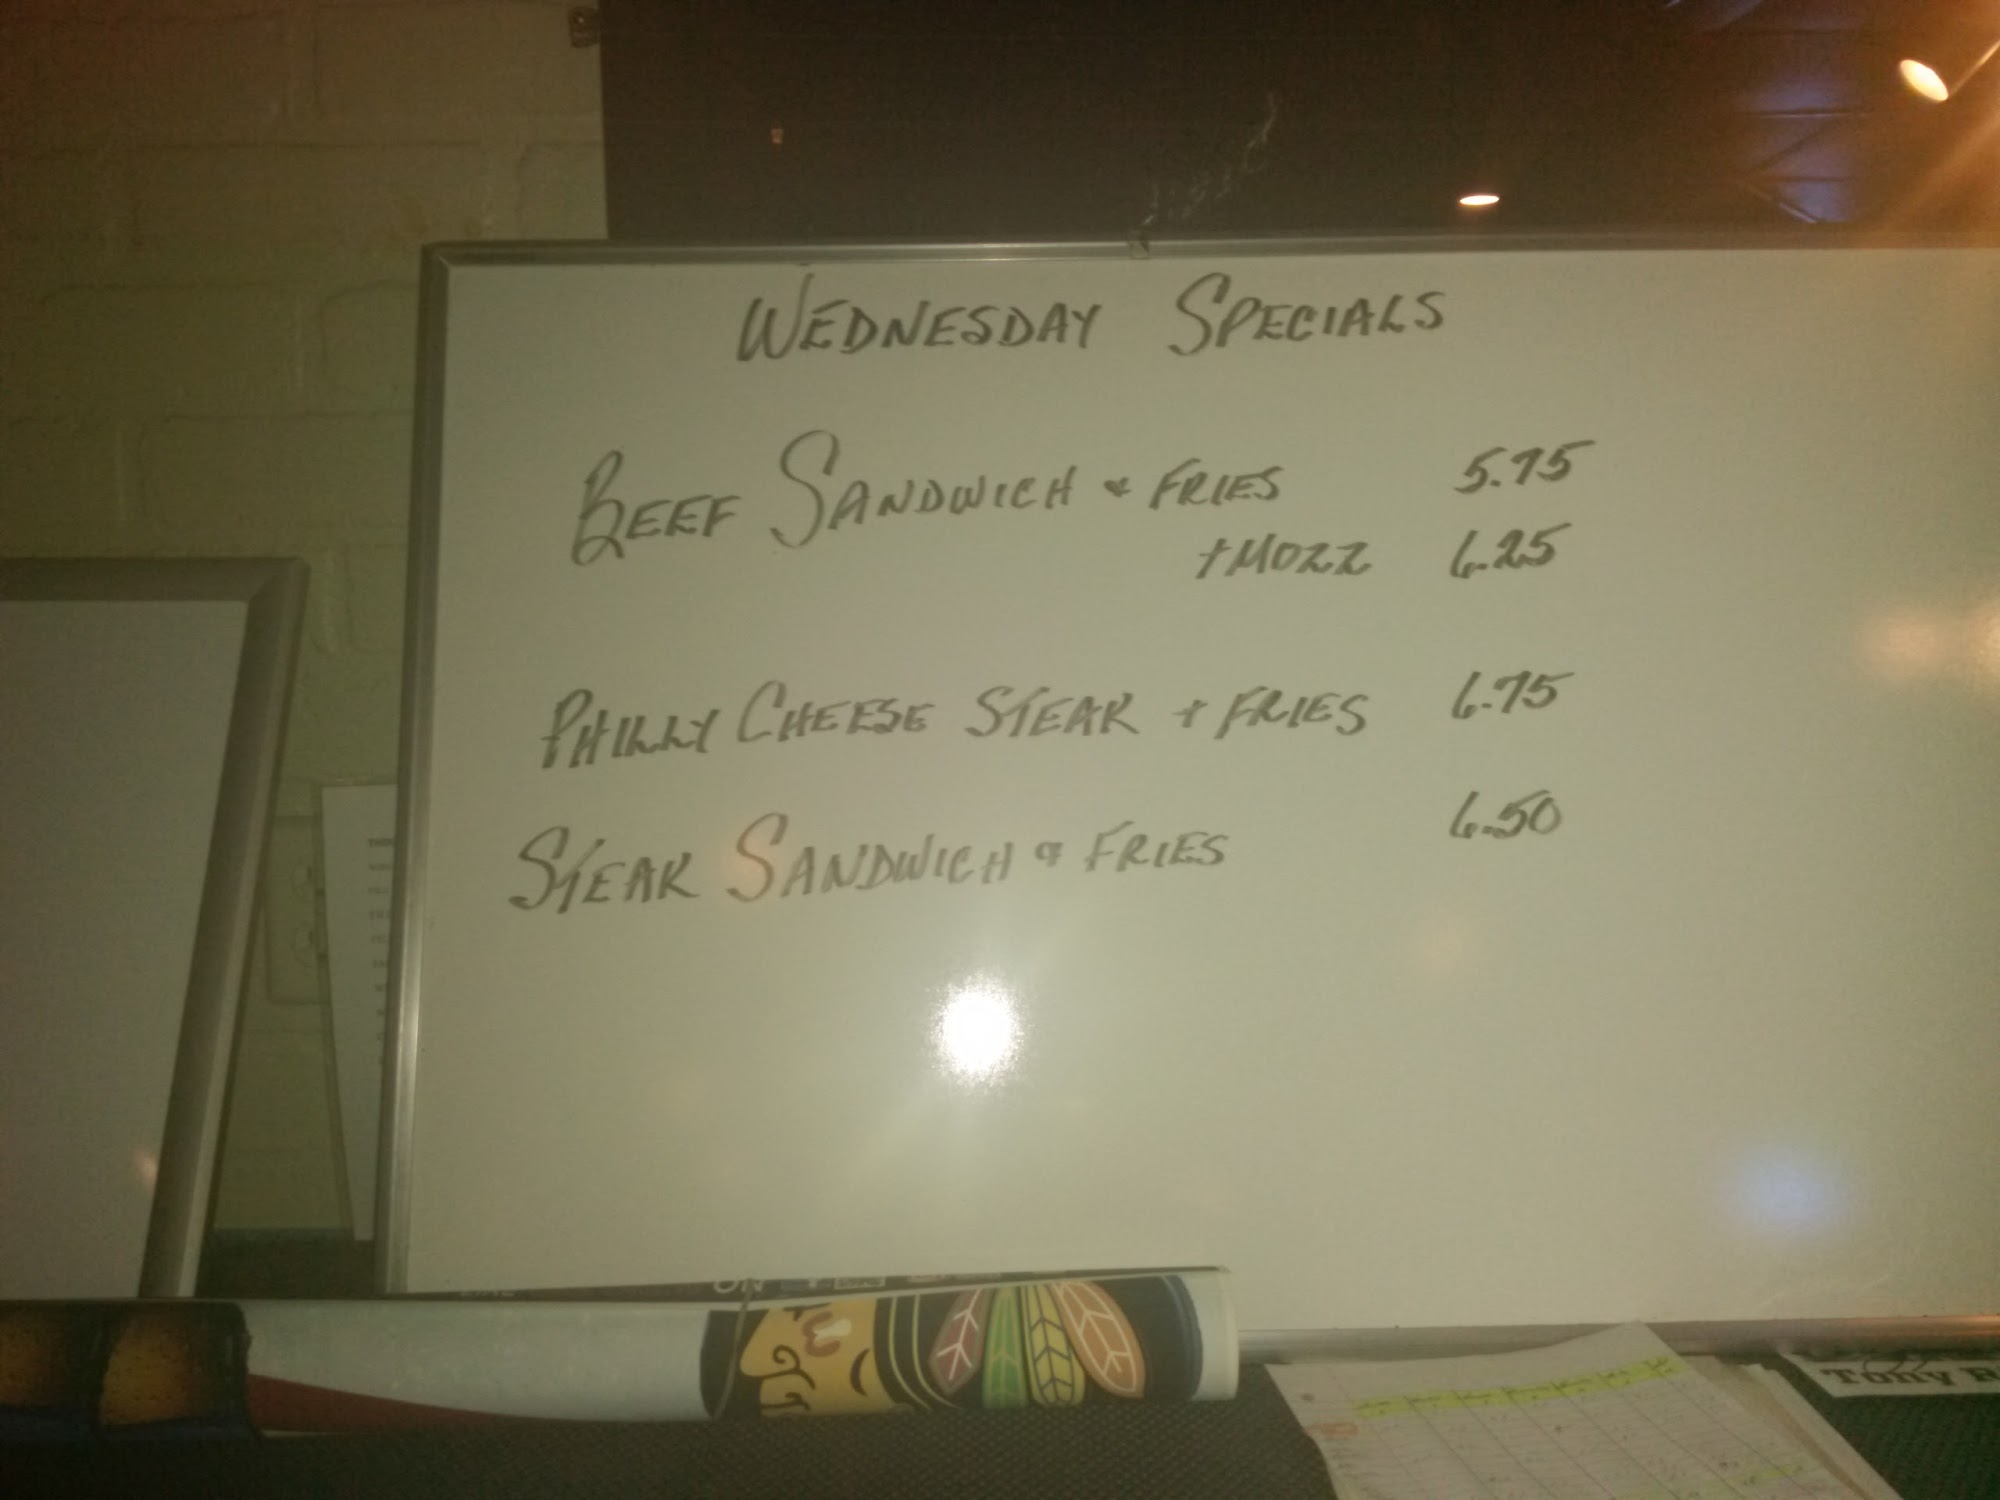 WEDNESDAY SPECIALS
BEEF SANDWICH & FRIES 5.75
+ MOZZ 6.25
PHILLY CHEESE STEAK + FRIES 6.75
STEAK SANDWICH & FRIES 6.50
Tony